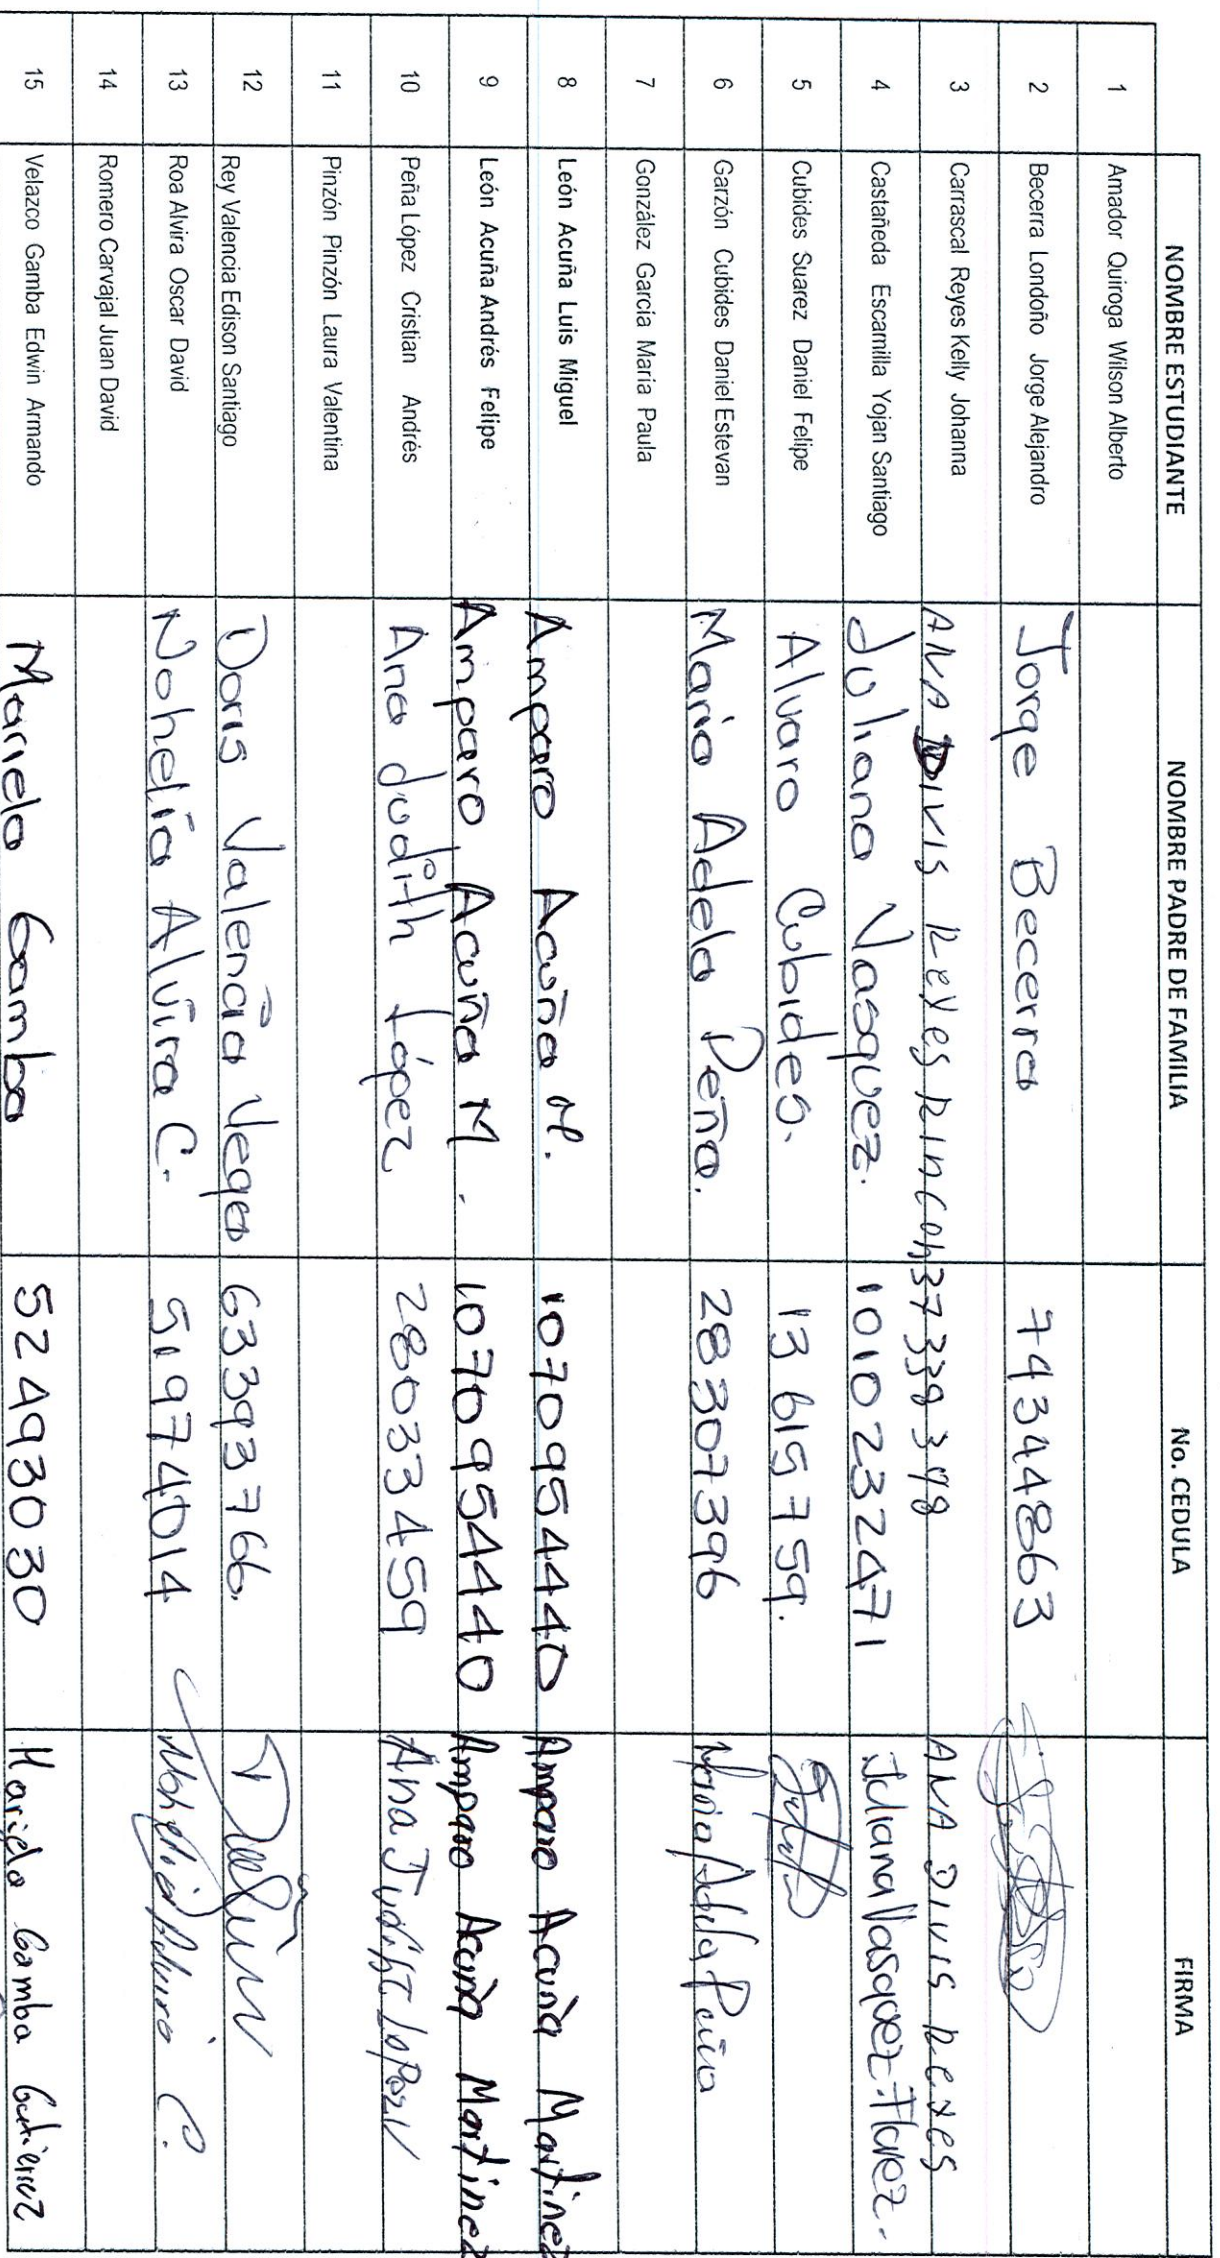 NOMBRE ESTUDIANTE NOMBRE PADRE DE FAMILIA No. CEDULA FIRMA
1 Amador Quiroga Wilson Alberto
2 Becerra Londoño Jorge Alejandro Jorge Becerra 74344863
3 Carrascal Reyes Kelly Johanna ANA DIVIS Reyes Rincon 37339398 ANA DIVIS Reyes
4 Castañeda Escamilla Yojan Santiago Juliana Vasquez. 1010232471 Juliana Vasquez Florez.
5 Cubides Suarez Daniel Felipe Alvaro Cubides. 13 615759.
6 Garzón Cubides Daniel Estevan Maria Adela Peña. 28307396 Maria Adela Peña
7 González García Maria Paula
8 León Acuña Luis Miguel Amparo Acuña M. 1070954440 Amparo Acuña Martinez
9 León Acuña Andrés Felipe Amparo Acuña M. 1070954440 Amparo Acuña Martinez
10 Peña López Cristian Andrés Ana Judith López 28033459
11 Pinzón Pinzón Laura Valentina
12 Rey Valencia Edison Santiago Doris Valencia Vega 63393766.
13 Roa Alvira Oscar David Nohelia Alvira C. 51974014
14 Romero Carvajal Juan David
15 Velazco Gamba Edwin Armando Mariela Gamba 52493030 Mariela Gamba Gutierrez